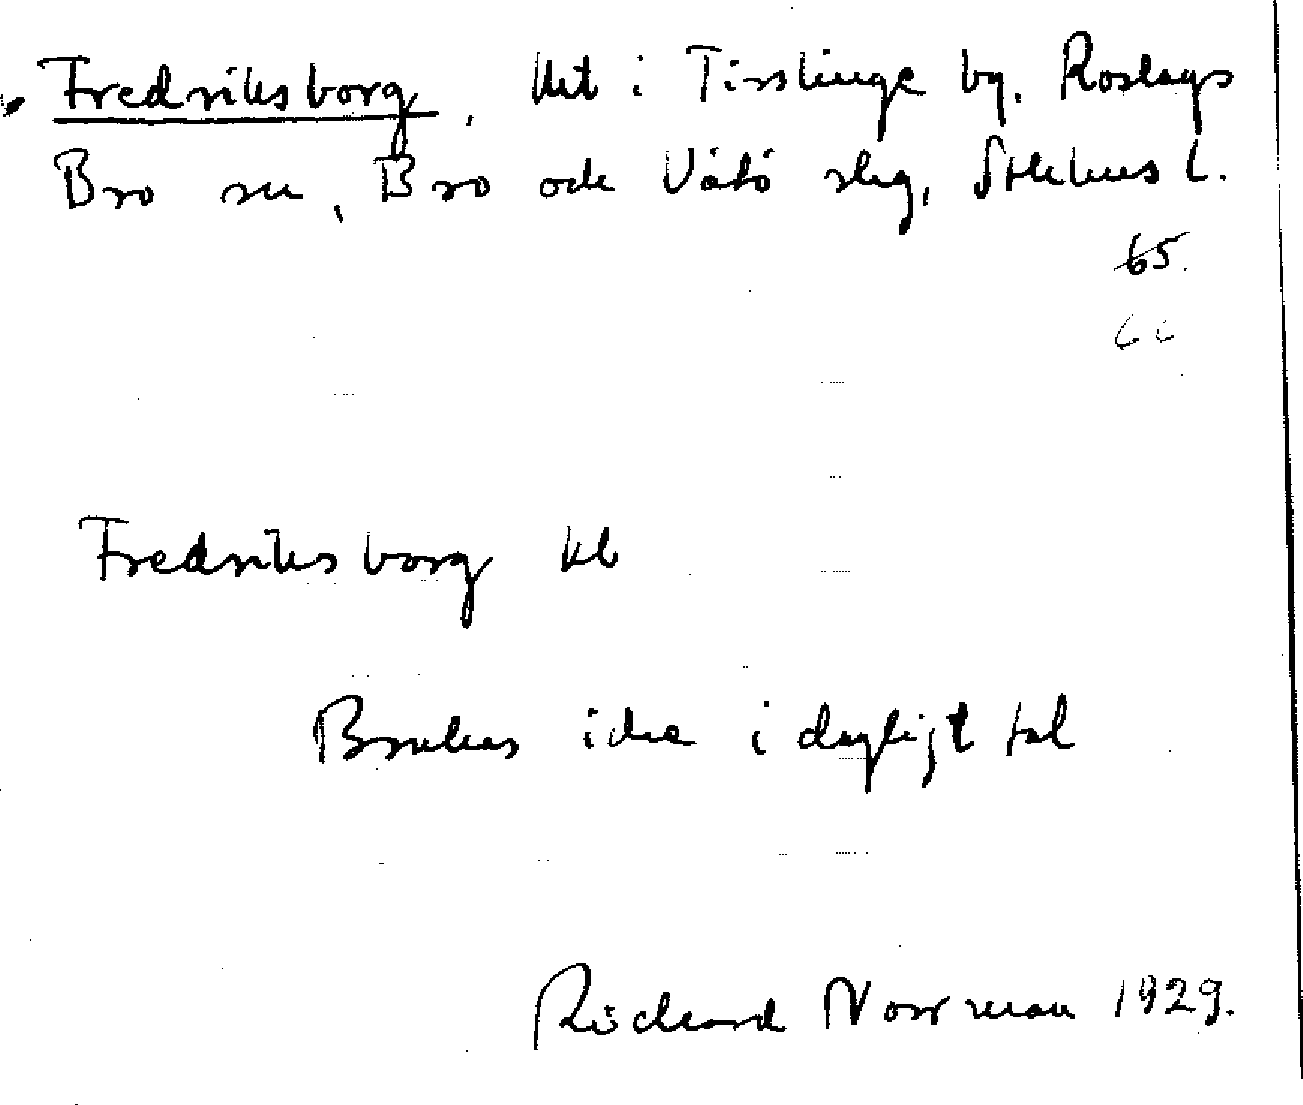 Fredriksborg, lht i Tisslinge by. Roslags
Bro sn, Bro och Vätö slg, Sthlms l.
65.
Fredriksborg
Brukas icke i dagligt tal
Richard Norrman 1929.